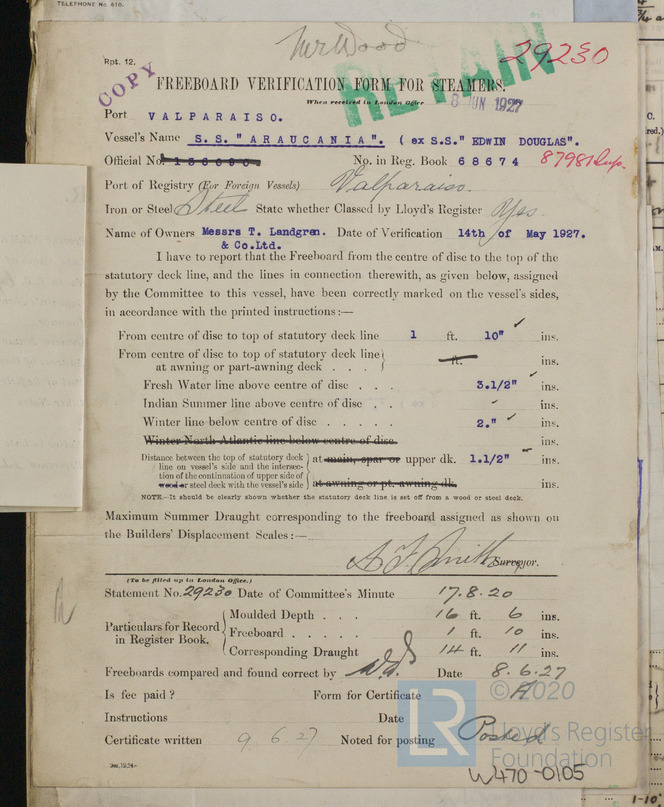 TELEPHONE No. 610.
Mr Wood
Rpt. 12.
29230
COPY
RETAIN
FREEBOARD VERIFICATION FORM FOR STEAMERS.
When received in London Office
8 JUN 1927
Port VALPARAISO.
Vessel's Name S.S. "ARAUCANIA". (ex S.S." EDWIN DOUGLAS".
Official No. No. in Reg. Book 68674 87981 Sup.
Port of Registry (For Foreign Vessels) Valparaiso.
Iron or Steel Steel State whether Classed by Lloyd's Register Yes.
Name of Owners Messrs T. Landgren. Date of Verification 14th of May 1927.
& Co.Ltd.
I have to report that the Freeboard from the centre of disc to the top of the
statutory deck line, and the lines in connection therewith, as given below, assigned
by the Committee to this vessel, have been correctly marked on the vessel's sides,
in accordance with the printed instructions:—
From centre of disc to top of statutory deck line 1 ft. 10" ✓ ins.
From centre of disc to top of statutory deck line
at awning or part-awning deck . . . ft. ins.
Fresh Water line above centre of disc . . . 3.1/2" ✓ ins.
Indian Summer line above centre of disc . . ✓ ins.
Winter line below centre of disc . . . . . 2." ✓ ins.
Winter North Atlantic line below centre of disc ins.
Distance between the top of statutory deck
line on vessel's side and the intersec-
tion of the continuation of upper side of
wood or steel deck with the vessel's side
at main, spar or upper dk. 1.1/2" ✓ ins.
at awning or pt. awning dk. ins.
NOTE.—It should be clearly shown whether the statutory deck line is set off from a wood or steel deck.
Maximum Summer Draught corresponding to the freeboard assigned as shown on
the Builders' Displacement Scales:—
A F Smith Surveyor.
(To be filled up in London Office.)
Statement No. 29230 Date of Committee's Minute 17.8.20
Particulars for Record
in Register Book.
Moulded Depth . . . 16 ft. 6 ins.
Freeboard . . . . . 1 ft. 10 ins.
Corresponding Draught 14 ft. 11 ins.
Freeboards compared and found correct by Date 8.6.27
Is fee paid? Form for Certificate A
Instructions Date
Certificate written 9.6.27 Noted for posting Posted
© 2020
LR
Lloyd's Register
Foundation
W470-0105
1-10